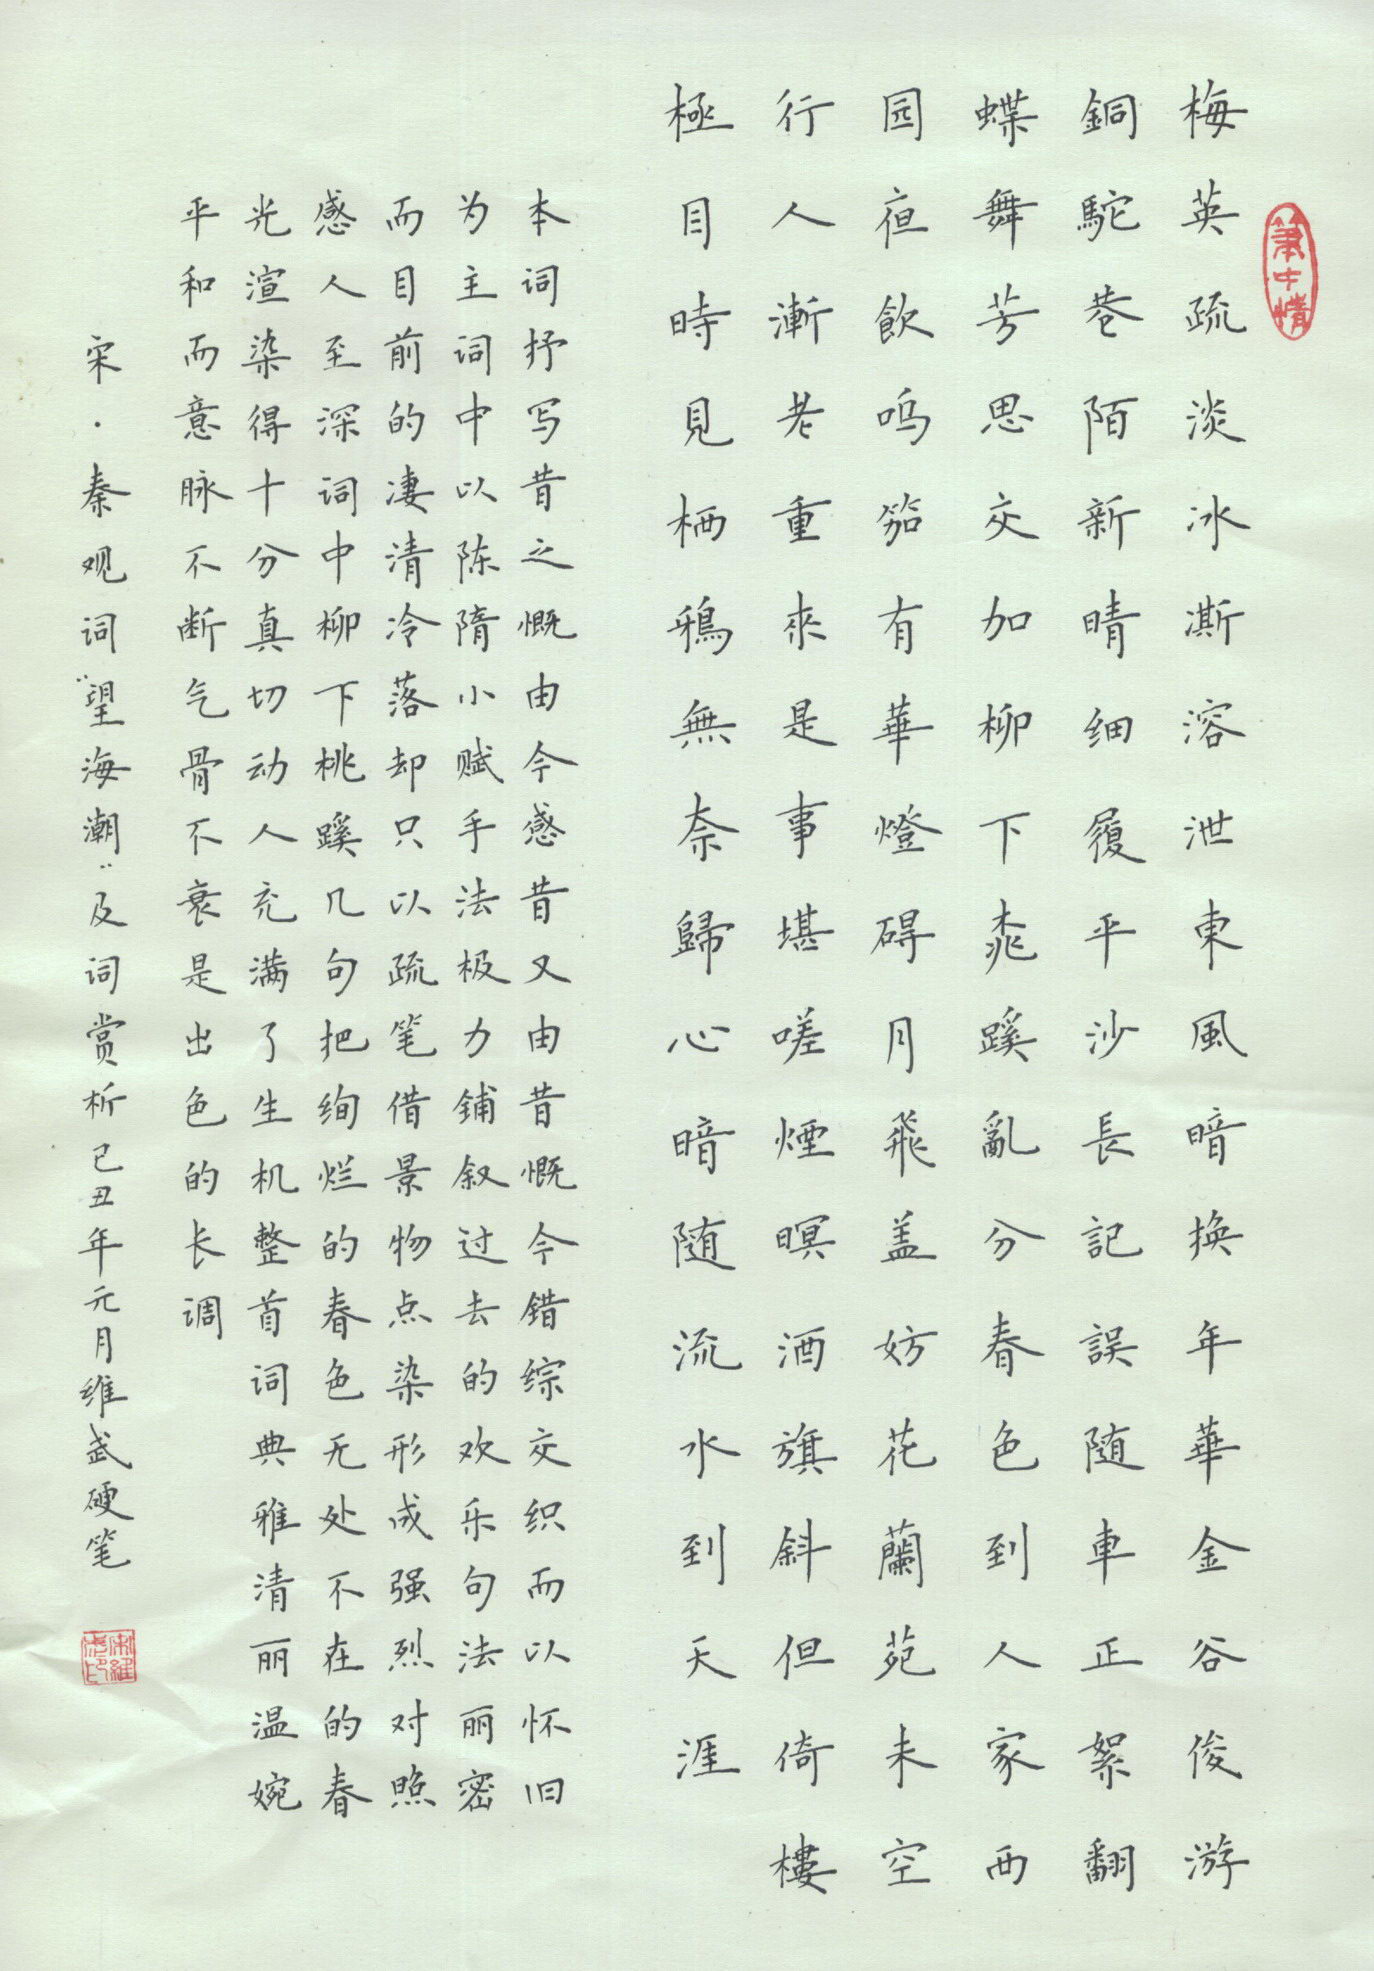 筆中情
梅英疏淡冰澌溶泄東風暗换年華金谷俊游
銅駝巷陌新晴细履平沙長記誤随車正絮翻
蝶舞芳思交加柳下桃蹊亂分春色到人家西
园夜飲鸣笳有華燈碍月飛盖妨花蘭苑未空
行人漸老重來是事堪嗟煙暝酒旗斜但倚樓
極目時見栖鴉無奈歸心暗随流水到天涯
本词抒写昔之慨由今感昔又由昔慨今错综交织而以怀旧
为主词中以陈隋小赋手法极力铺叙过去的欢乐句法丽密
而目前的凄清冷落却只以疏笔借景物点染形成强烈对照
感人至深词中柳下桃蹊几句把绚烂的春色无处不在的春
光渲染得十分真切动人充满了生机整首词典雅清丽温婉
平和而意脉不断气骨不衰是出色的长调
宋·秦观词"望海潮"及词赏析己丑年元月维武硬笔
宋維武印